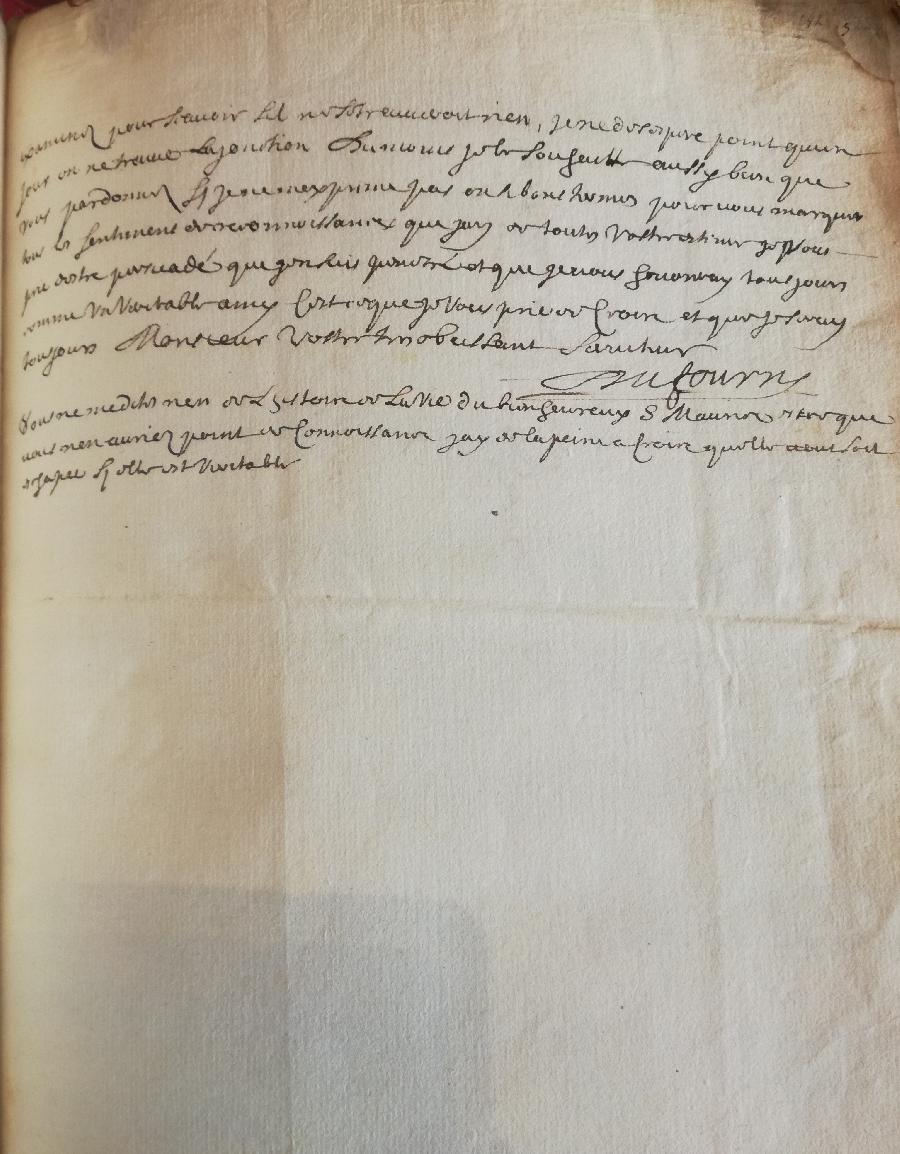 examinez pour scavoir sil ne sstrouueroit rien, je ne desespere point quun
jour on ne trouue la jonction Du moins je le souhaitte aussy bien que
vous pardonnez sy je ne mexprime pas en bons termes pour vous marquer
tous les sentimens de reconnoissance que jay de toute vostre estime je vous
prie destre persuadé que jen suis penetré et que je vous honoreray tousjours
comme un veritable amy Cest ce que je vous prie de croire et que je seray
tousjours Monsieur Vostre tres obeissant serviteur
Du fourny
Vous ne me dites rien de Lhistoire de La vie du bienheureux S Maurice est ce que
vous nen auriez point de Connoissance jay de la peine a croire quelle vous soit
eschapee sy elle est veritable